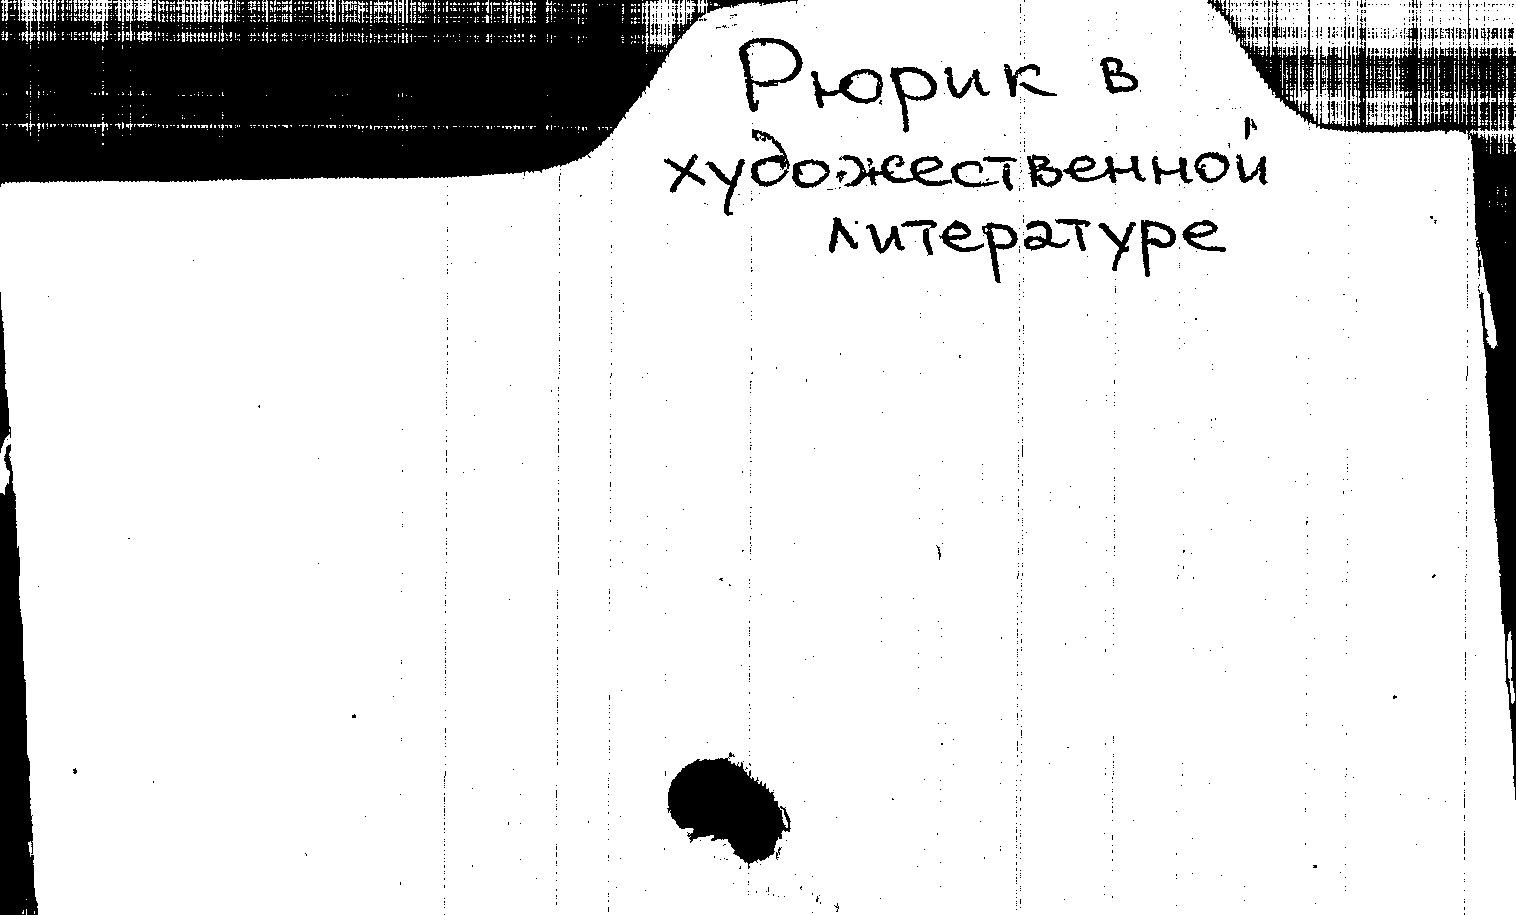 Рюрик в
художественной
литературе